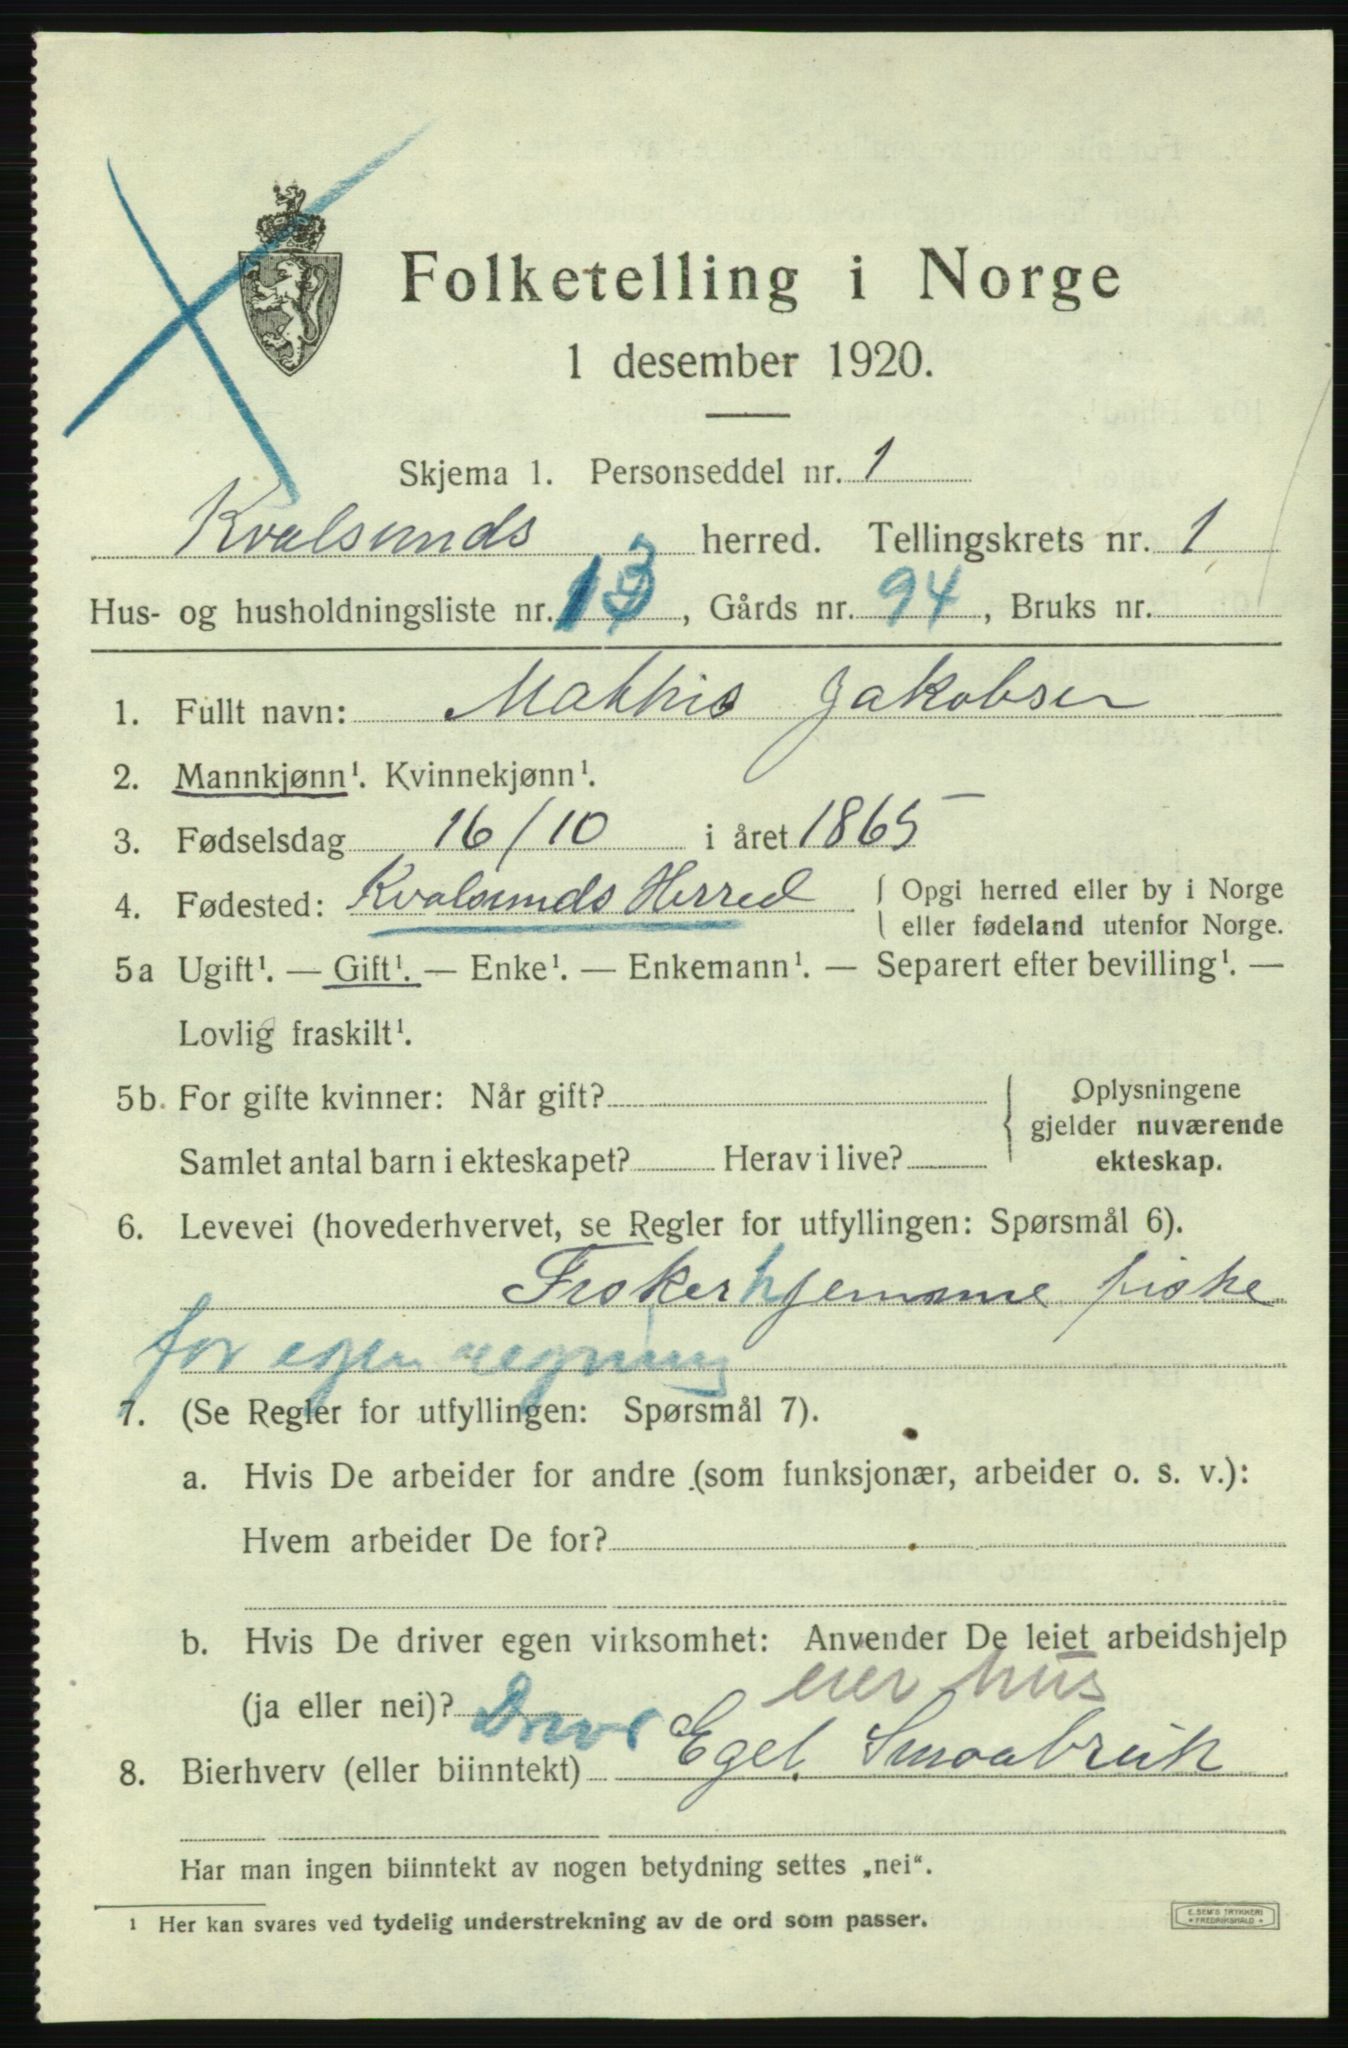 Folketelling i Norge
1 desember 1920.
Skjema 1. Personseddel nr. 1
Kvalsunds herred. Tellingskrets nr. 1
Hus- og husholdningsliste nr. 13, Gårds nr. 94, Bruks nr.
1. Fullt navn: Mathis Jakobsen
2. Mannkjønn¹. Kvinnekjønn¹.
3. Fødselsdag 16/10 i året 1865
4. Fødested: Kvalsunds Herred { Opgi herred eller by i Norge
eller fødeland utenfor Norge.
5a Ugift¹. — Gift¹. — Enke¹. — Enkemann¹. — Separert efter bevilling¹. —
Lovlig fraskilt¹.
5b. For gifte kvinner: Når gift? { Oplysningene
gjelder nuværende
Samlet antal barn i ekteskapet? Herav i live? ekteskap.
6. Levevei (hovederhvervet, se Regler for utfyllingen: Spørsmål 6).
Fisker hjemme fiske
for egen regning
7. (Se Regler for utfyllingen: Spørsmål 7).
a. Hvis De arbeider for andre (som funksjonær, arbeider o. s. v.):
Hvem arbeider De for?
b. Hvis De driver egen virksomhet: Anvender De leiet arbeidshjelp
eier hus
(ja eller nei)? Driver
8. Bierhverv (eller biinntekt) Eget Smaabruk
Har man ingen biinntekt av nogen betydning settes „nei“.
¹ Her kan svares ved tydelig understrekning av de ord som passer.
E. SEM'S TRYKKERI
* FREDRIKSHALD *